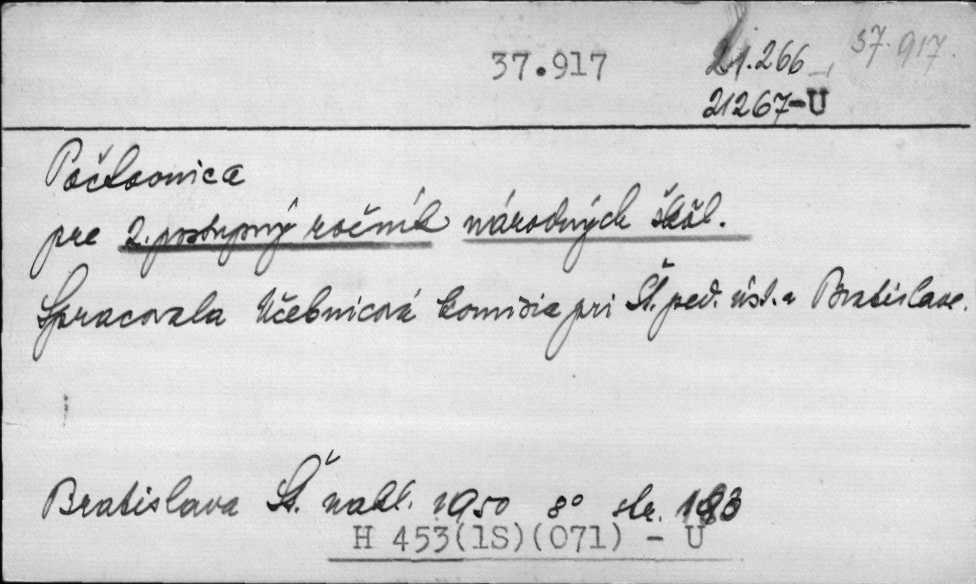 37.917 21.266 37.917.
21267-U
Počtovnica
pre 2. postupný ročník národných škôl.
Spracovala Učebnicová komisia pri Št. ped. úst. v Bratislave.
Bratislava Št. nakl. 1950 8° str. 183
H 453(1S)(071) - U